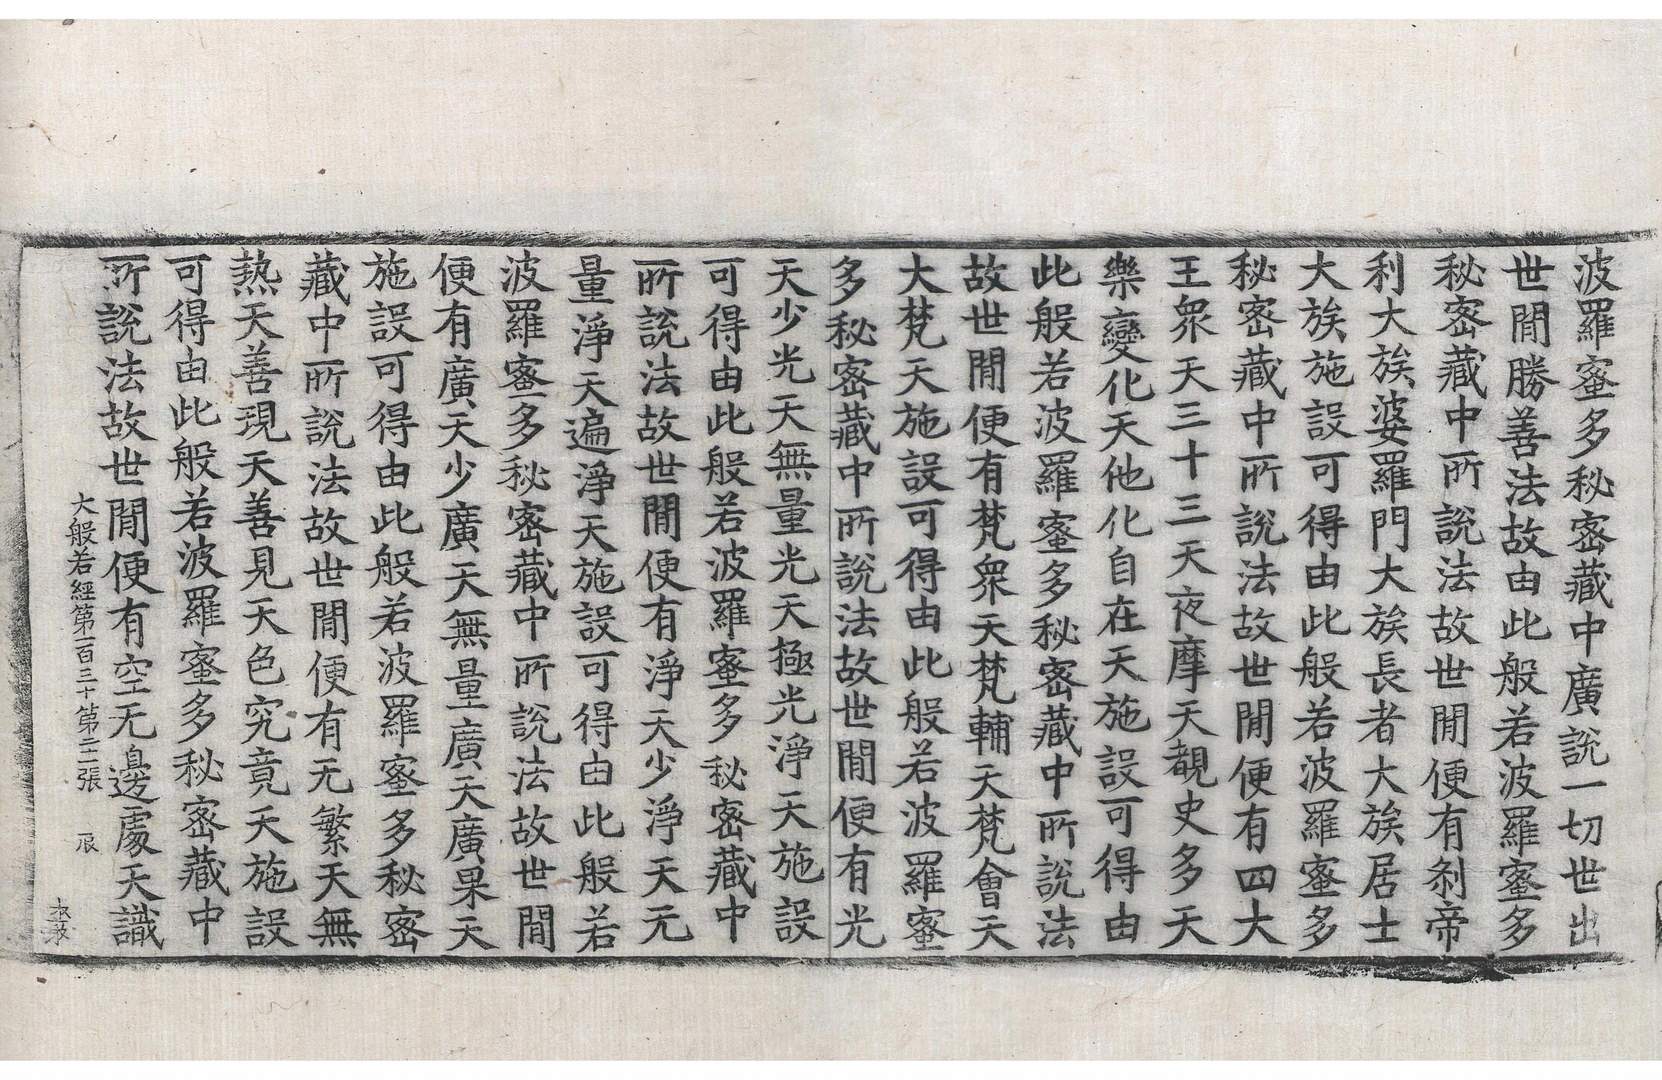 波羅蜜多秘密藏中廣說一切世出
世間勝善法故由此般若波羅蜜多
秘密藏中所說法故世間便有剎帝
利大族婆羅門大族長者大族居士
大族施設可得由此般若波羅蜜多
秘密藏中所說法故世間便有四大
王眾天三十三天夜摩天覩史多天
樂變化天他化自在天施設可得由
此般若波羅蜜多秘密藏中所說法
故世間便有梵眾天梵輔天梵會天
大梵天施設可得由此般若波羅蜜
多秘密藏中所說法故世間便有光
天少光天無量光天極光淨天施設
可得由此般若波羅蜜多秘密藏中
所說法故世間便有淨天少淨天无
量淨天遍淨天施設可得由此般若
波羅蜜多秘密藏中所說法故世間
便有廣天少廣天無量廣天廣果天
施設可得由此般若波羅蜜多秘密
藏中所說法故世間便有无繁天無
熱天善現天善見天色究竟天施設
可得由此般若波羅蜜多秘密藏中
所說法故世間便有空无邊處天識
大般若經第一百三十第二張